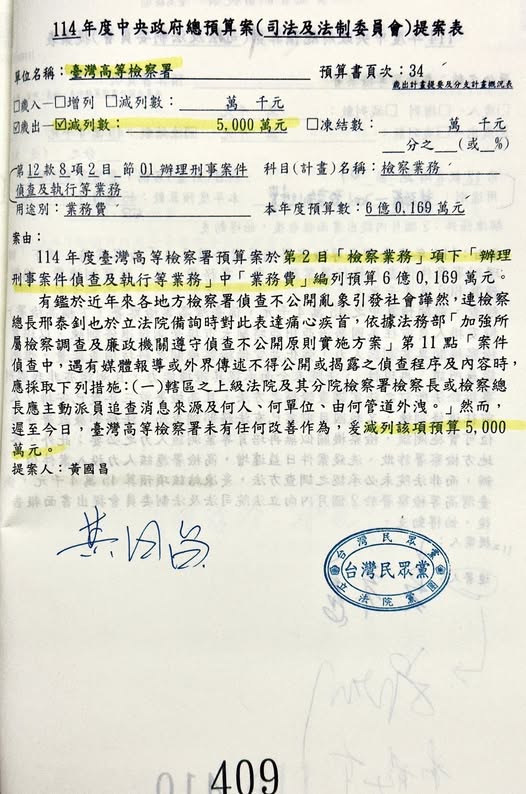 114年度中央政府總預算案(司法及法制委員會)提案表
單位名稱：臺灣高等檢察署 預算書頁次：34
歲出計畫提要及分支計畫概況表
□歲入—□增列 □減列數： 萬 千元
☑歲出—☑減列數： 5,000萬元 □凍結數： 萬 千元
分之 (或%)
第12款8項2目 節01辦理刑事案件偵查及執行等業務 科目(計畫)名稱：檢察業務
用途別：業務費 本年度預算數：6億0,169萬元
案由：
114年度臺灣高等檢察署預算案於第2目「檢察業務」項下「辦理
刑事案件偵查及執行等業務」中「業務費」編列預算6億0,169萬元。
有鑑於近年來各地方檢察署偵查不公開亂象引發社會譁然，連檢察
總長邢泰釗也於立法院備詢時對此表達痛心疾首，依據法務部「加強所
屬檢察調查及廉政機關遵守偵查不公開原則實施方案」第11點「案件
偵查中，遇有媒體報導或外界傳述不得公開或揭露之偵查程序及內容時，
應採取下列措施：(一)轄區之上級法院及其分院檢察署檢察長或檢察總
長應主動派員追查消息來源及何人、何單位、由何管道外洩。」然而，
遲至今日，臺灣高等檢察署未有任何改善作為，爰減列該項預算5,000
萬元。
提案人：黃國昌
黃國昌
台灣民眾黨
台灣民眾黨
立法院黨團
409